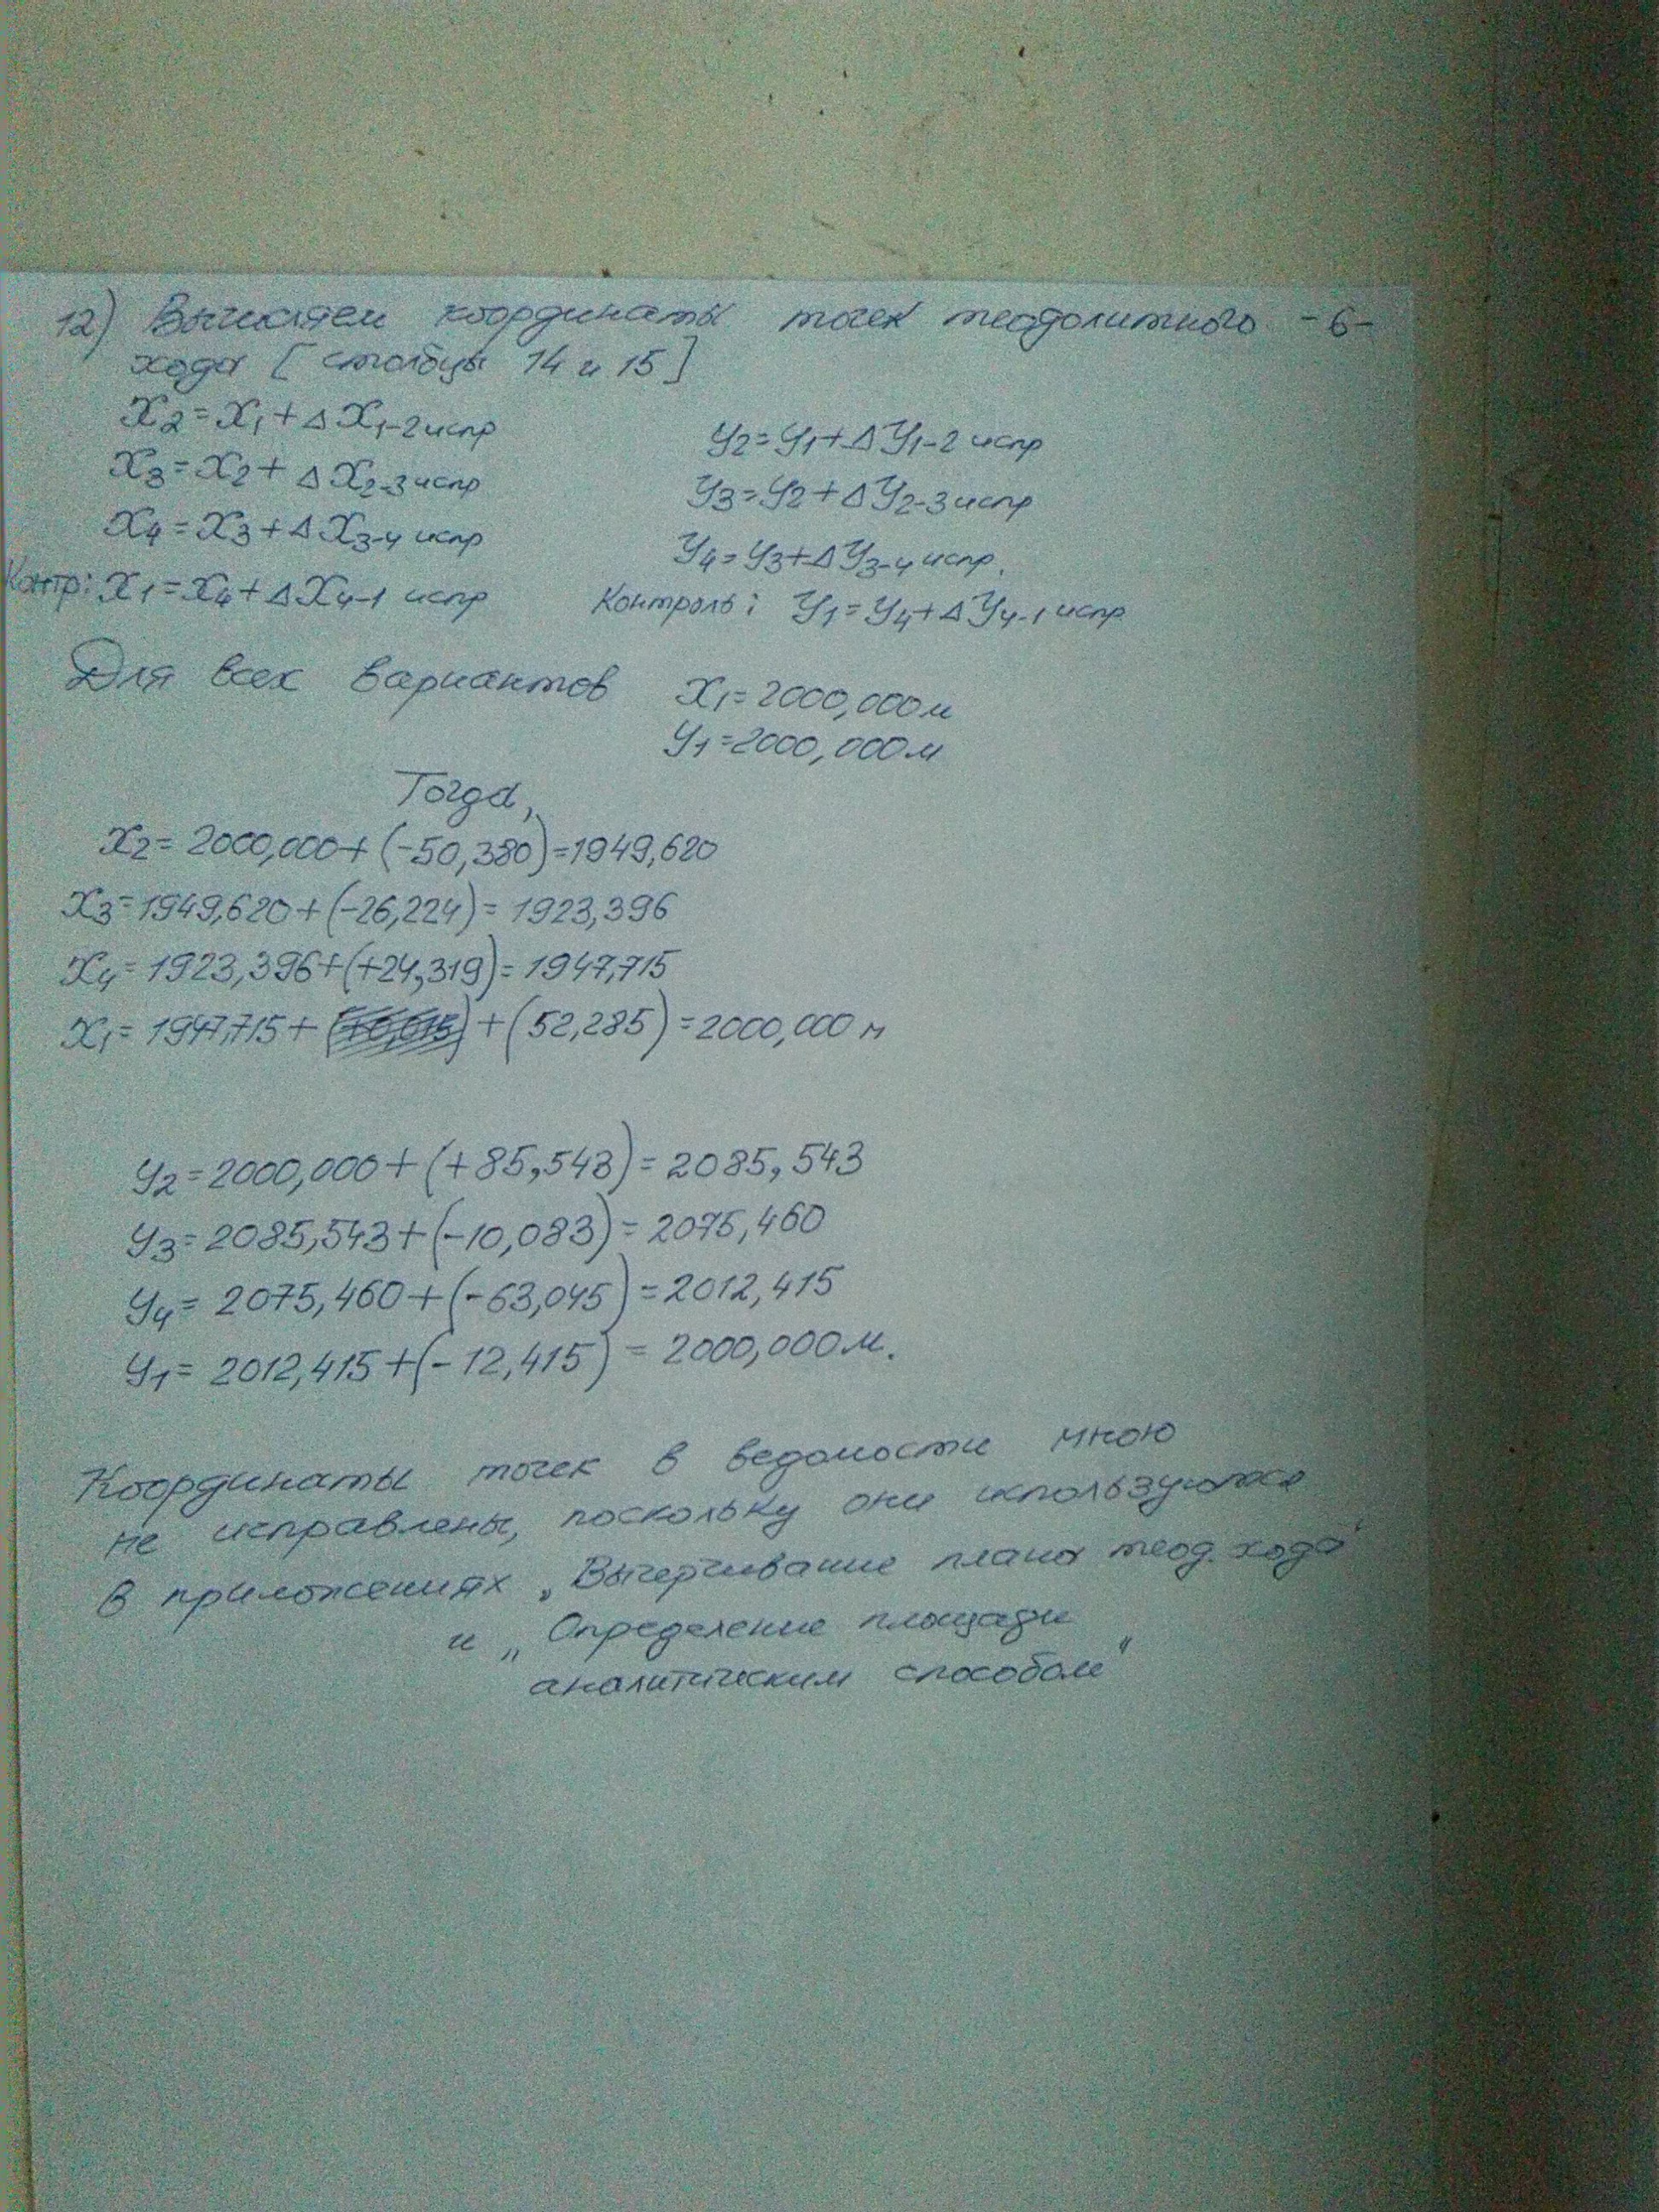 12) Вычисляем координаты точек теодолитного -6-
хода [столбцы 14 и 15]
X2=X1+ΔX1-2испр
Y2=Y1+ΔY1-2испр
X3=X2+ΔX2-3испр
Y3=Y2+ΔY2-3испр
X4=X3+ΔX3-4испр
Y4=Y3+ΔY3-4испр.
Контр: X1=X4+ΔX4-1 испр
Контроль: Y1=Y4+ΔY4-1испр
Для всех вариантов X1=2000,000м
Y1=2000,000м
Тогда,
X2=2000,000+(-50,380)=1949,620
X3=1949,620+(-26,224)=1923,396
X4=1923,396+(+24,319)=1947,715
X1=1947,715+ +(52,285)=2000,000м
Y2=2000,000+(+85,543)=2085,543
Y3=2085,543+(-10,083)=2075,460
Y4=2075,460+(-63,045)=2012,415
Y1=2012,415+(-12,415)=2000,000м.
Координаты точек в ведомости мною
не исправлены, поскольку они используются
в приложениях „Вычерчивание плана теод. хода"
и „Определение площади
аналитическим способом"